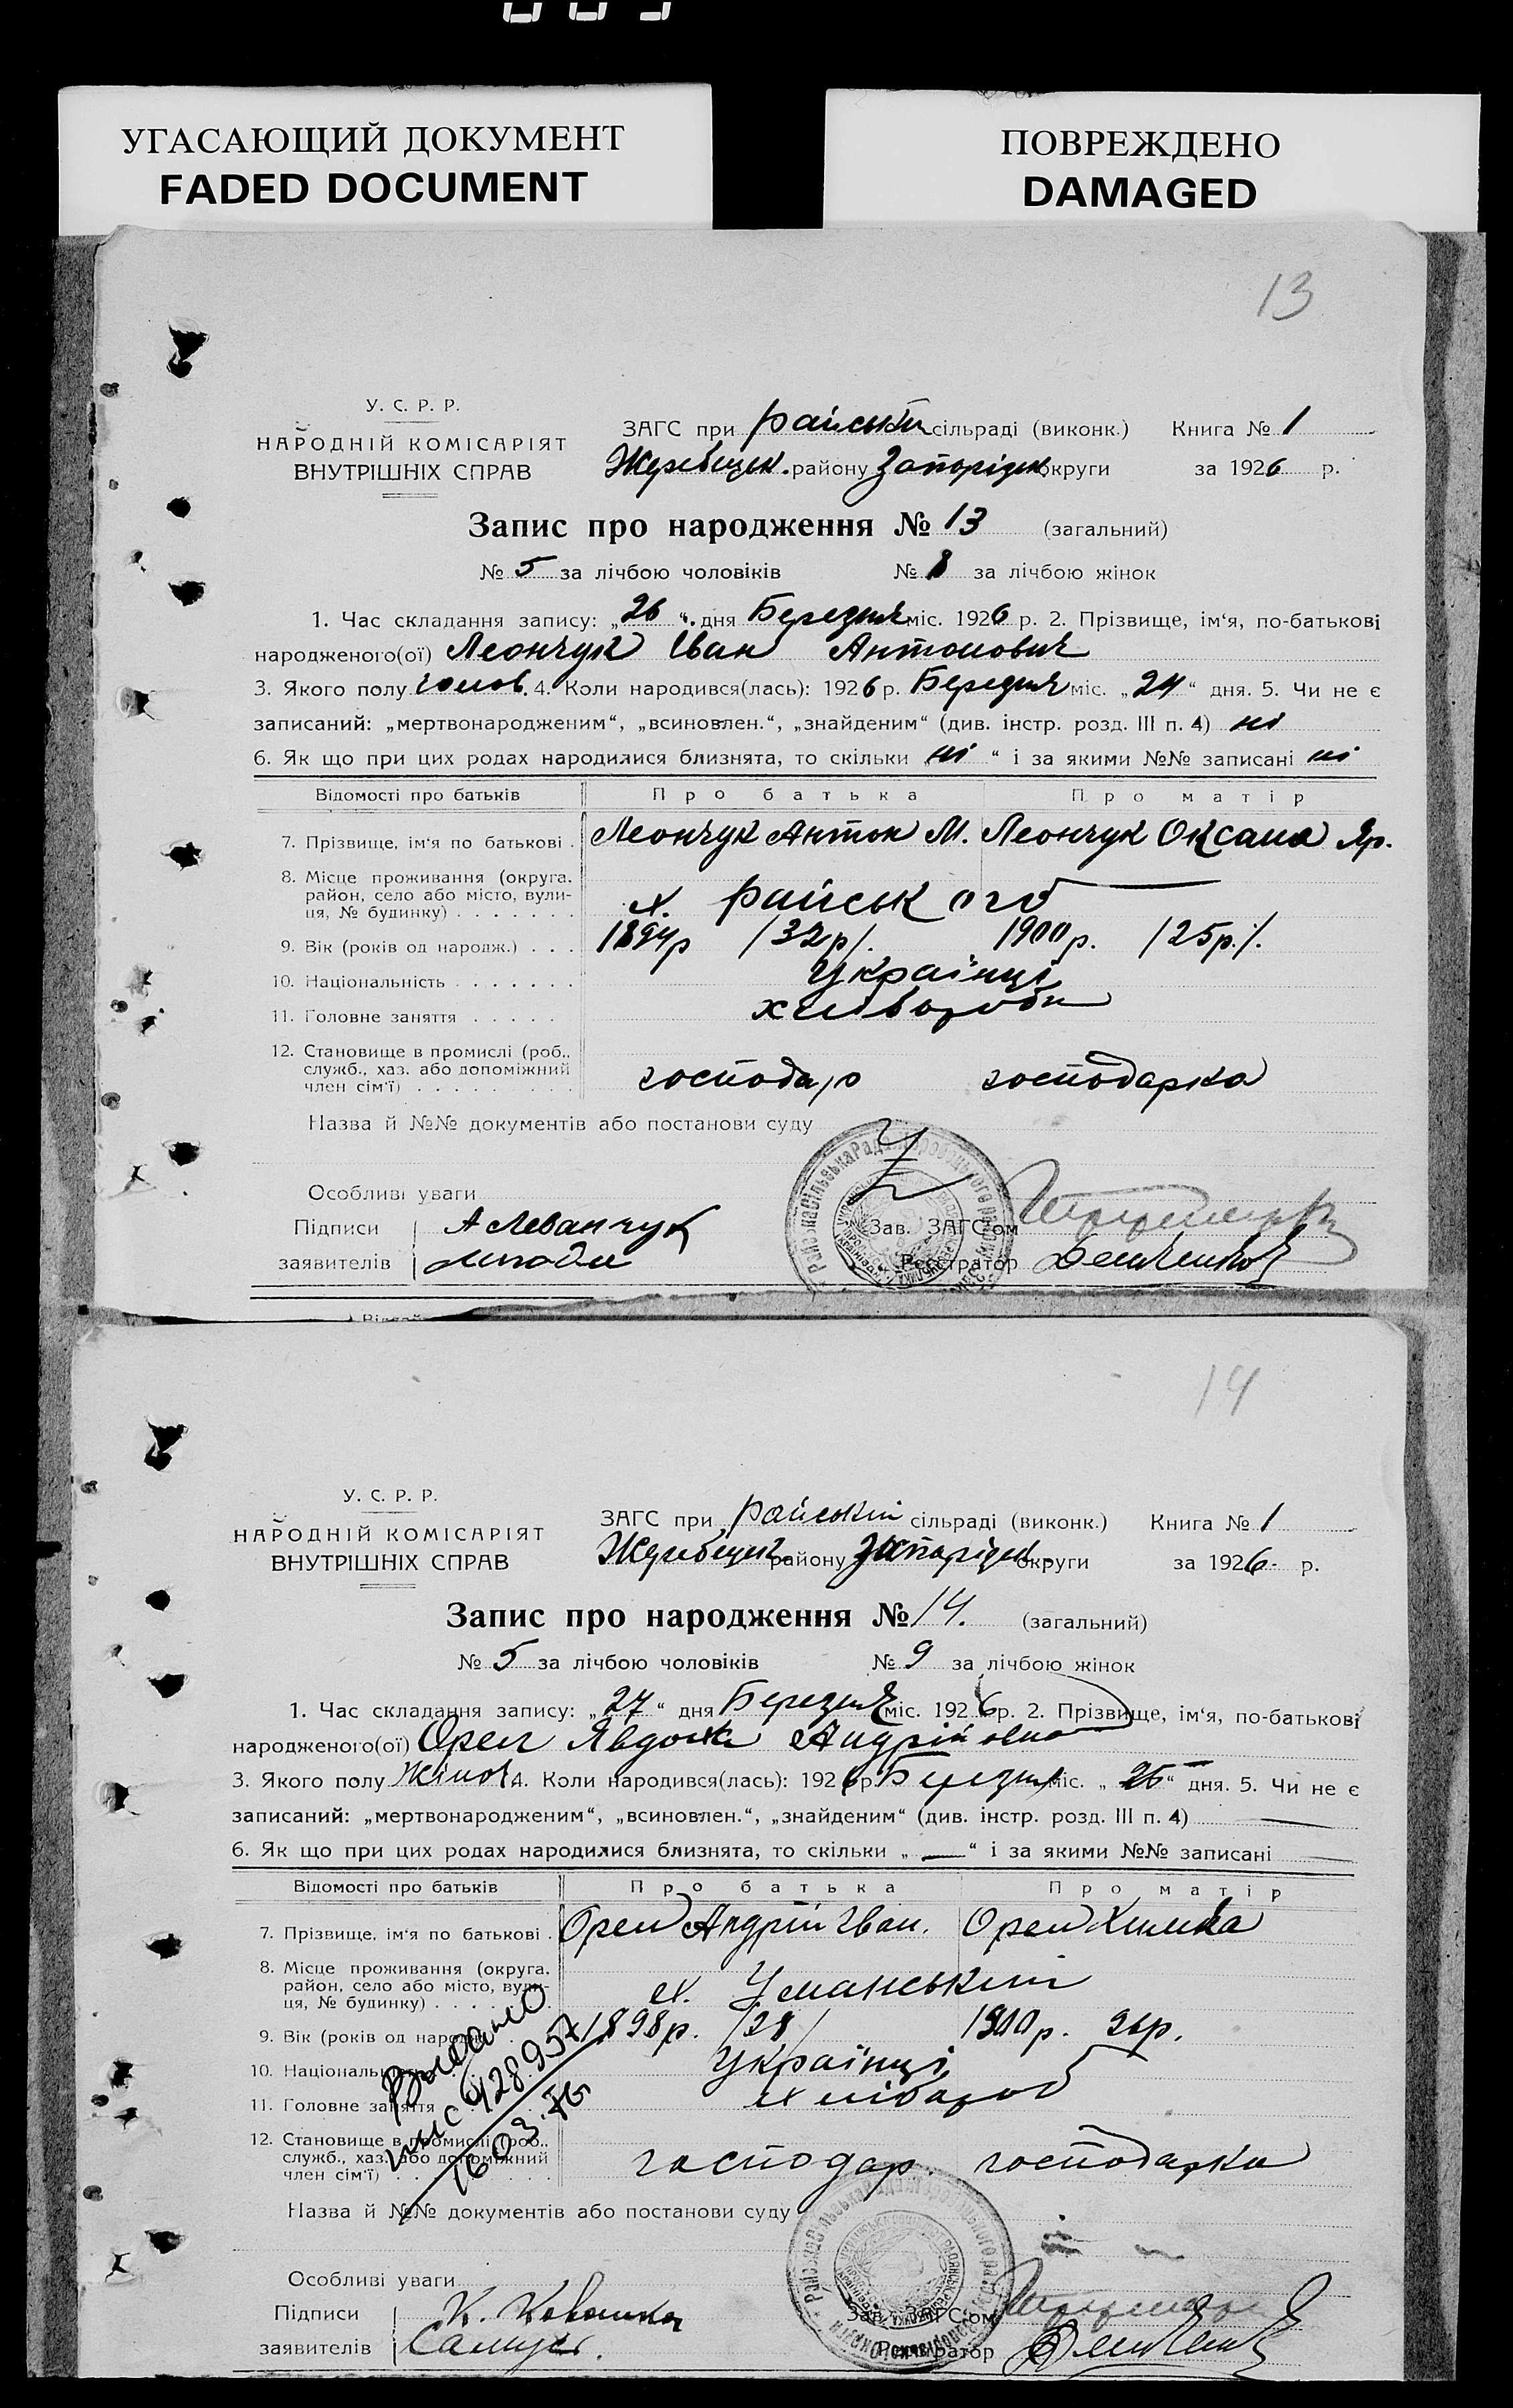 УГАСАЮЩИЙ ДОКУМЕНТ
FADED DOCUMENT
ПОВРЕЖДЕНО
DAMAGED
13
У. С. Р. Р.
НАРОДНІЙ КОМІСАРІЯТ
ВНУТРІШНІХ СПРАВ
ЗАГС при Райській сільраді (виконк.) Книга № 1
Жеребецьк. району Запорізьк. округи за 1926 р.
Запис про народження № 13 (загальний)
№ 5 за лічбою чоловіків № 8 за лічбою жінок
1. Час складання запису: „26“ дня Березня міс. 1926 р. 2. Прізвище, ім‘я, по-батькові
народженого(ої) Леончук Іван Антонович
3. Якого полу чолов. 4. Коли народився(лась): 1926 р. Березня міс. „24“ дня. 5. Чи не є
записаний: „мертвонародженим“, „всиновлен.“, „знайденим“ (див. інстр. розд. III п. 4) ні
6. Як що при цих родах народилися близнята, то скільки „ні“ і за якими №№ записані ні
Відомості про батьків Про батька Про матір
7. Прізвище, ім‘я по батькові . Леончук Антон М. Леончук Оксана Яр.
8. Місце проживання (округа.
район, село або місто, вули-
ця, № будинку) . . . . . . . х. Райськ ого
9. Вік (років од народж.) . . . 1894р /32р/. 1900р. /25р./.
10. Національність . . . . . . . Українці
11. Головне заняття . . . . . хлібороби
12. Становище в промислі (роб.,
служб., хаз. або допоміжний
член сім‘ї) . . . . . . . . . господар господарка
Назва й №№ документів або постанови суду
Особливі уваги
Підписи А Леванчук Зав. ЗАГС‘ом
заявителів Реєстратор Демченко
14
У. С. Р. Р.
НАРОДНІЙ КОМІСАРІЯТ
ВНУТРІШНІХ СПРАВ
ЗАГС при Райській сільраді (виконк.) Книга № 1
Жеребецьк. району Запорізьк. округи за 1926 р.
Запис про народження № 14. (загальний)
№ 5 за лічбою чоловіків № 9 за лічбою жінок
1. Час складання запису: „27“ дня Березня міс. 1926 р. 2. Прізвище, ім‘я, по-батькові
народженого(ої) Орел Явдоха Андріївна
3. Якого полу Жіноч 4. Коли народився(лась): 1926 р. Березня міс. „25“ дня. 5. Чи не є
записаний: „мертвонародженим“, „всиновлен.“, „знайденим“ (див. інстр. розд. III п. 4) —
6. Як що при цих родах народилися близнята, то скільки „—“ і за якими №№ записані —
Відомості про батьків Про батька Про матір
7. Прізвище, ім‘я по батькові . Орел Андрій Іван. Орел Химка
8. Місце проживання (округа.
район, село або місто, вули-
ця, № будинку) . . . . . . . х. Уманський
9. Вік (років од народж.) . . . 1898р. /28/ 1900р. 26р.
10. Національність . . . . . . . Українці
11. Головне заняття . . . . . хлібороб
12. Становище в промислі (роб.,
служб., хаз. або допоміжний
член сім‘ї) . . . . . . . . . господар. господарка
Выдано
428957
16 03.76
Назва й №№ документів або постанови суду
Особливі уваги
Підписи К. Зав. ЗАГС‘ом
заявителів Реєстратор Демченко